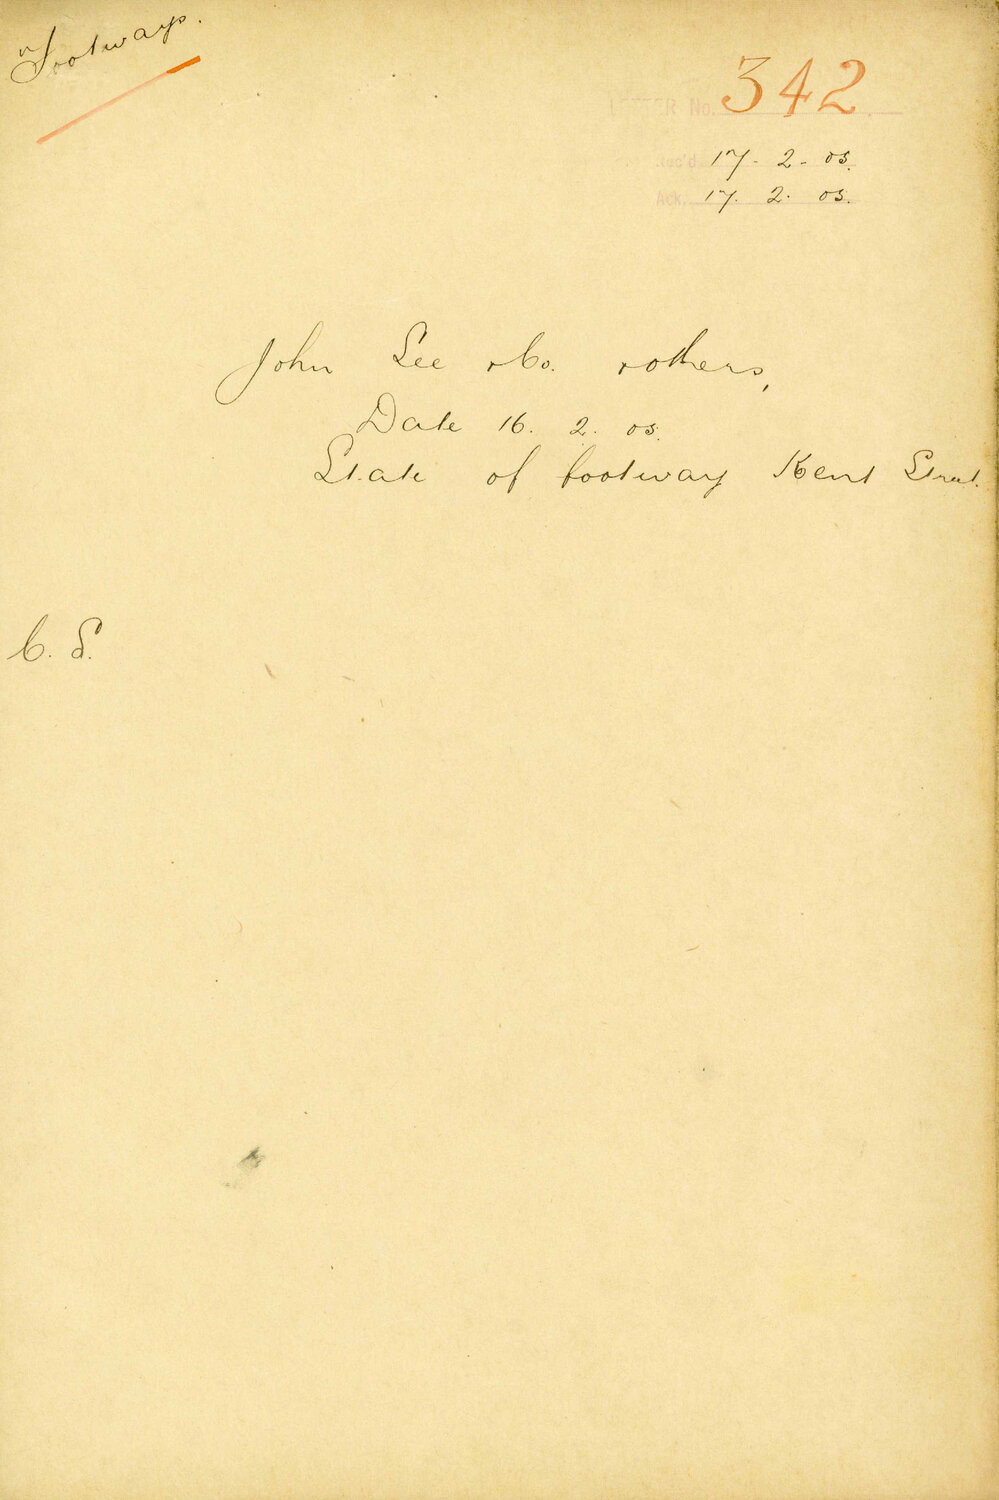 Footways.
LETTER No. 342
Rec'd 17. 2. 03.
Ack. 17. 2. 03.
John Lee & Co. & others,
Date 16. 2. 03.
State of footway Kent Street.
C. S.